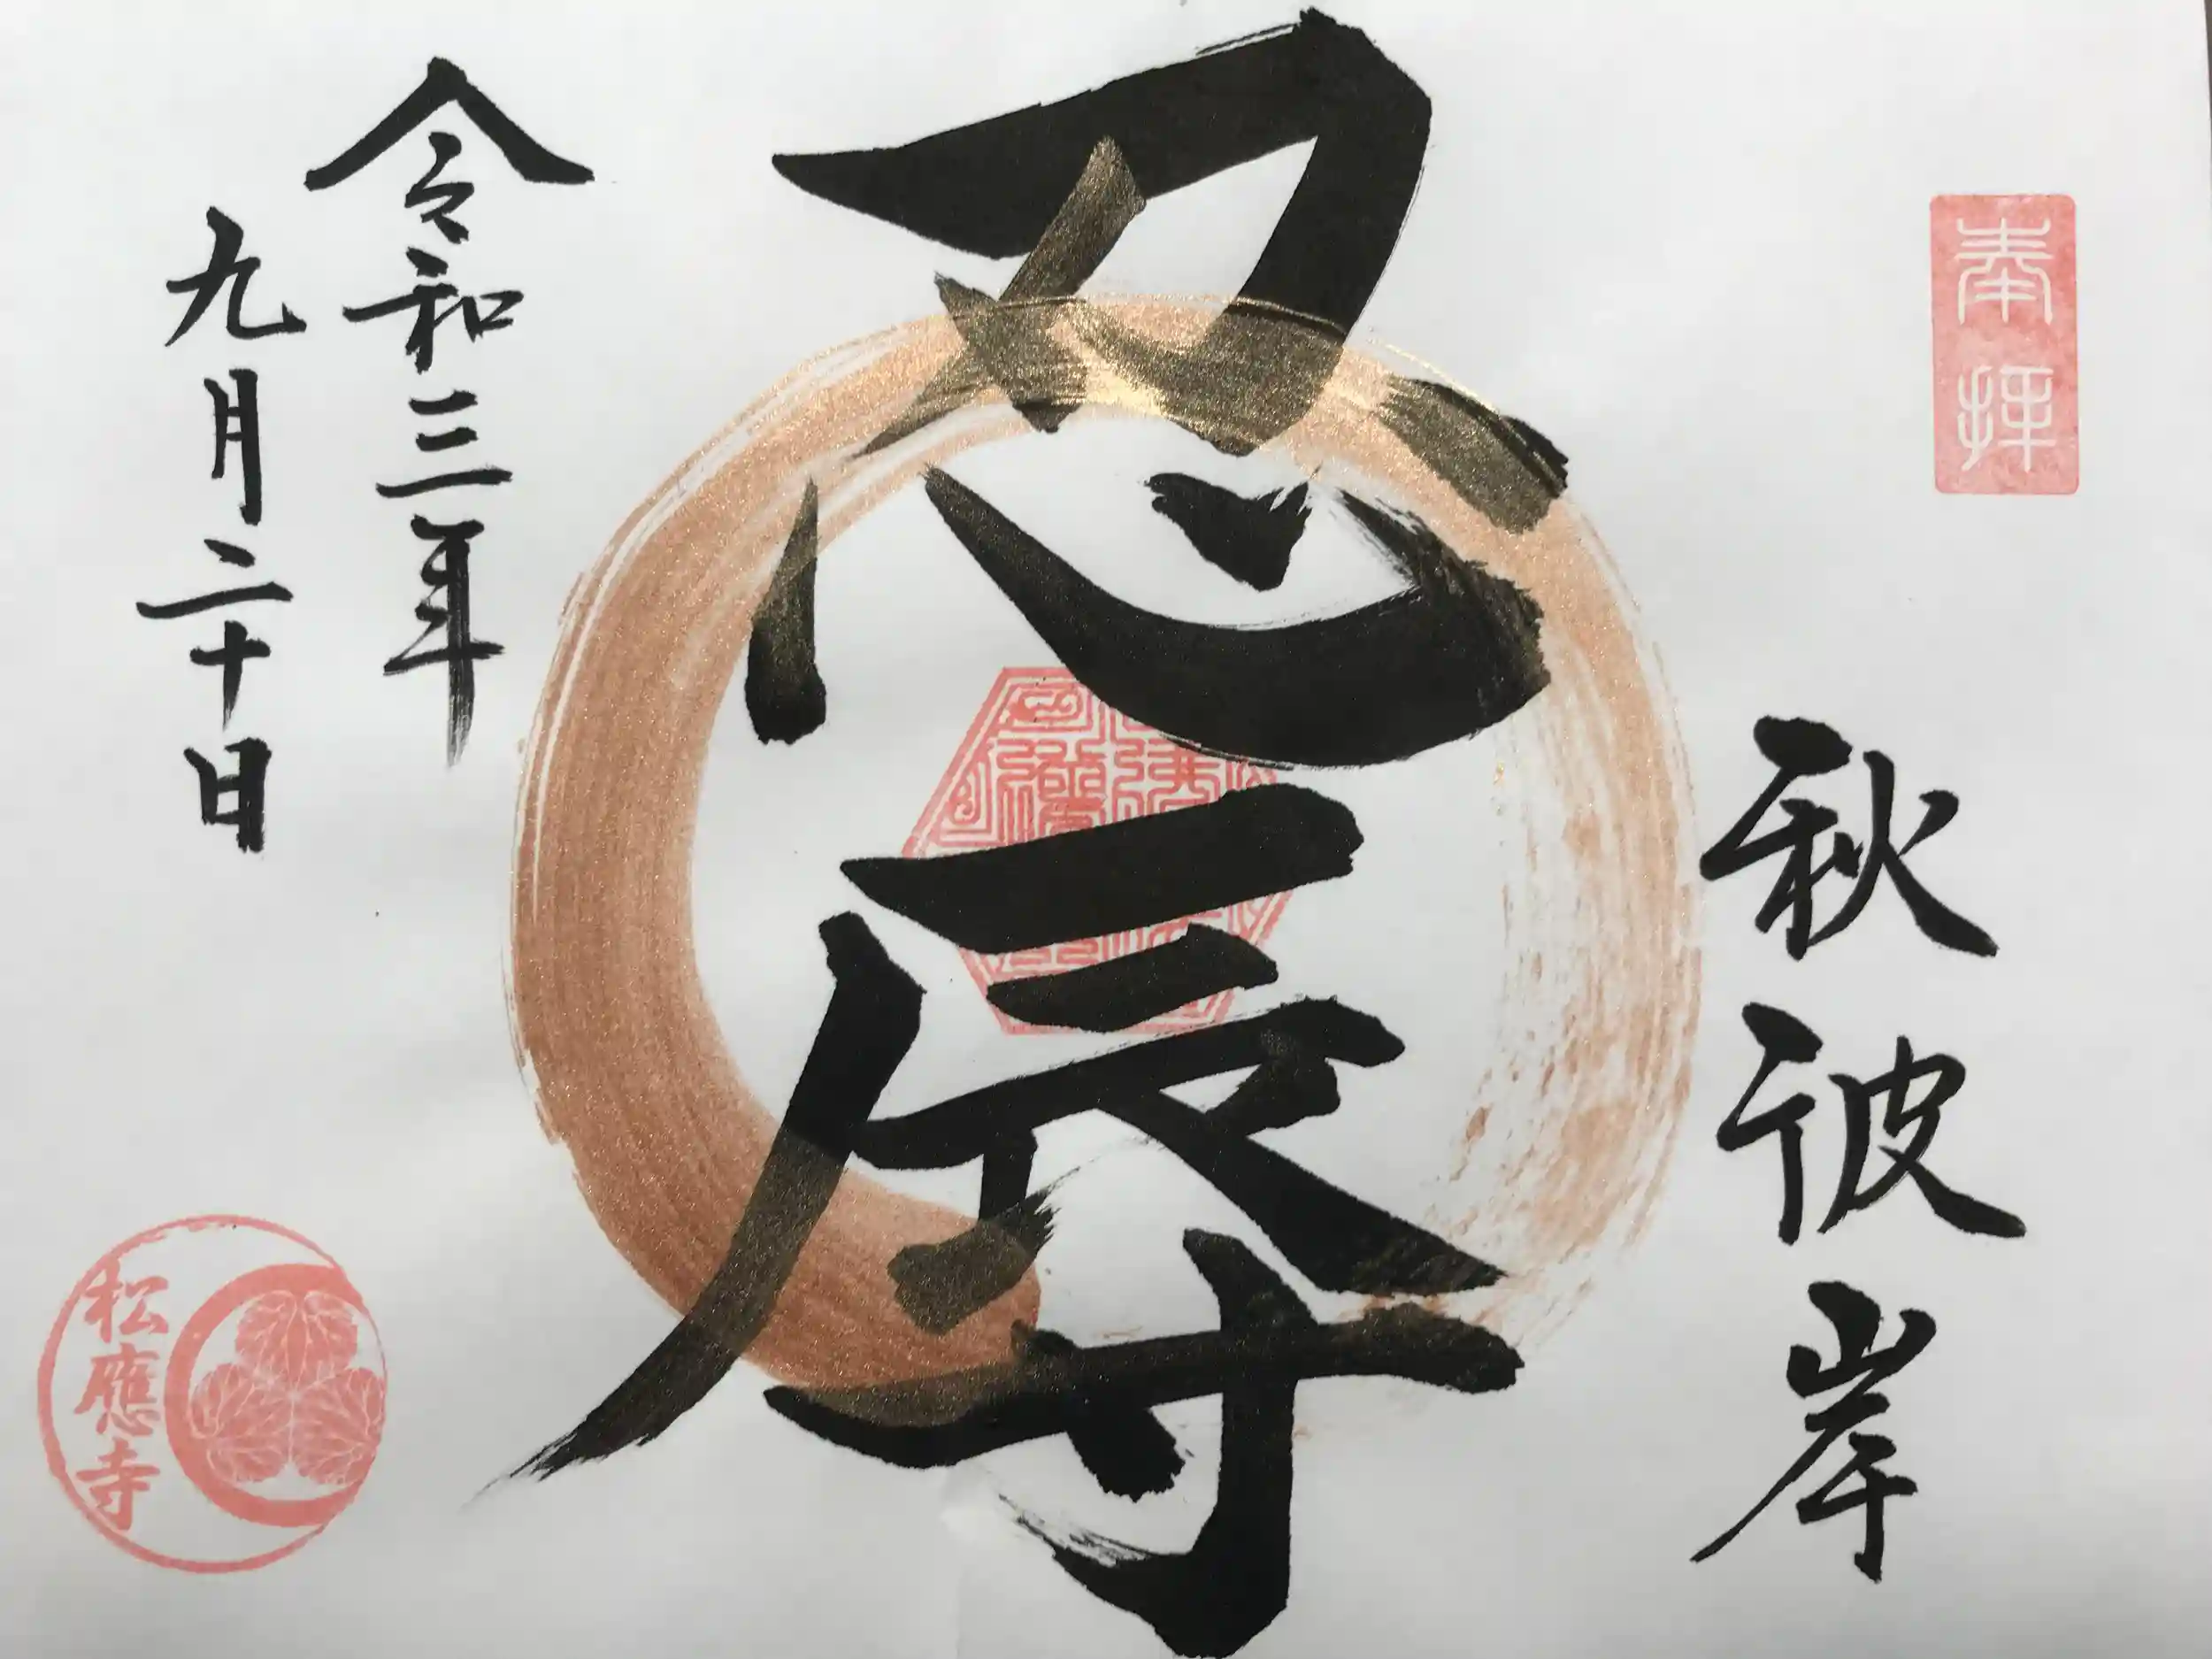 奉拝
秋彼岸
忍辱
令和三年
九月二十日
松應寺